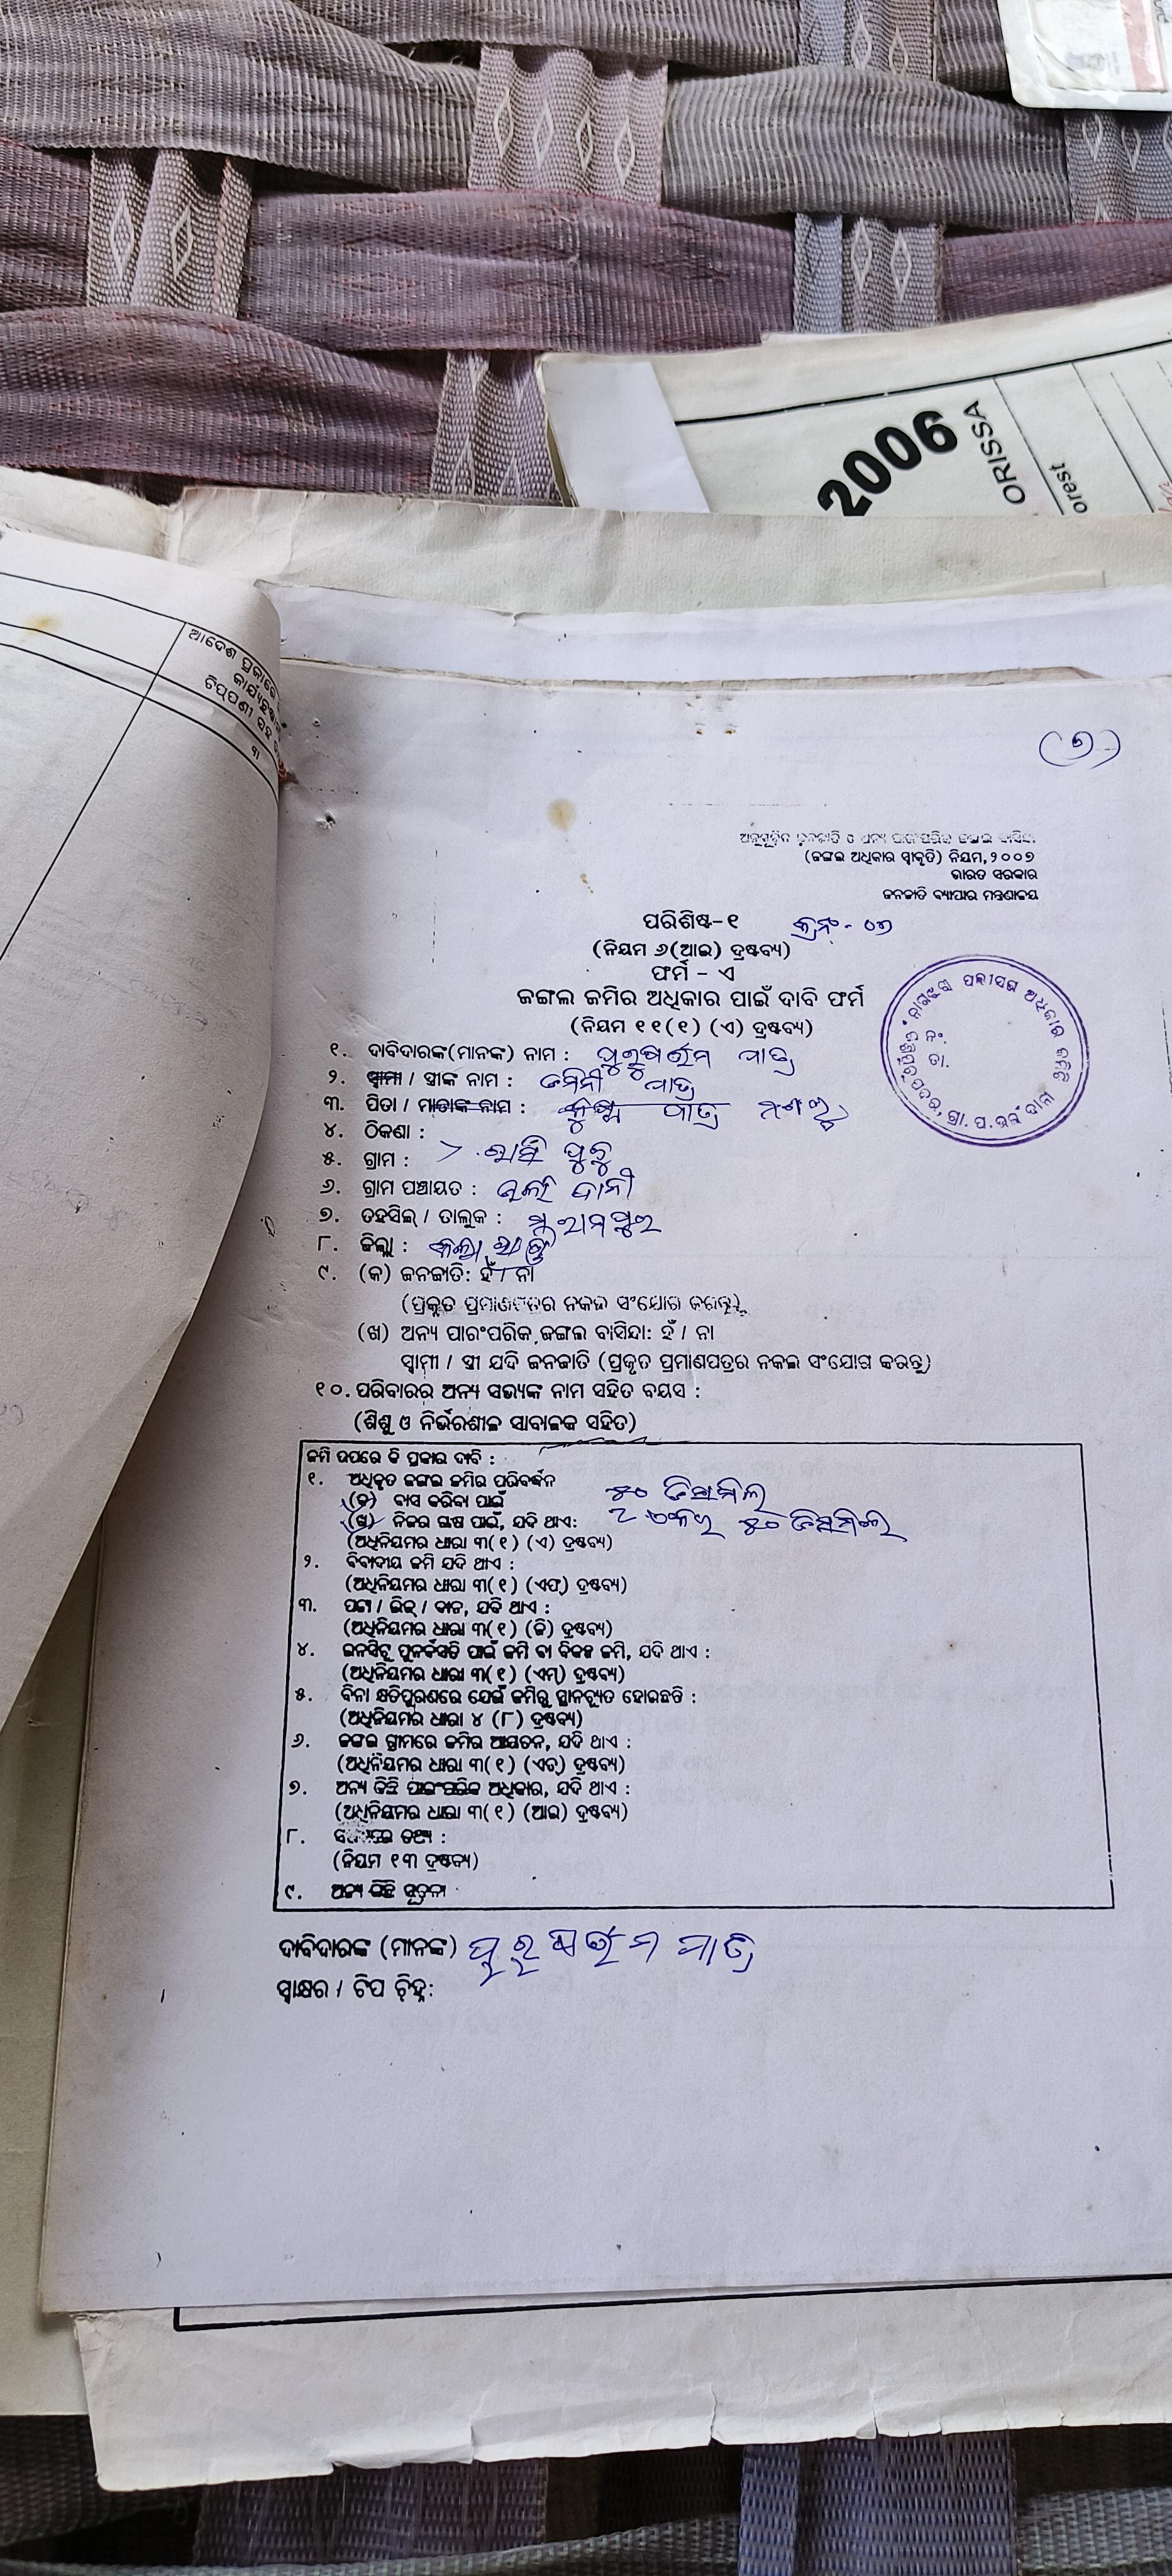 2006
ORISSA
orest
ଆଦେଶ ପ୍ରକାରେ
କାର୍ଯ୍ୟାନୁଷ୍ଠାନ
ଟିପ୍ପଣୀ ସହ
୩
(୭)
ଅନୁସୂଚିତ ଜନଜାତି ଓ ଅନ୍ୟ ପାରଂପରିକ ଜଙ୍ଗଲ ବାସିନ୍ଦା
(ଜଙ୍ଗଲ ଅଧିକାର ସ୍ୱୀକୃତି) ନିୟମ, ୨୦୦୭
ଭାରତ ସରକାର
ଜନଜାତି ବ୍ୟାପାର ମନ୍ତ୍ରଣାଳୟ
ପରିଶିଷ୍ଟ-୧ କ୍ରନଂ - ୦୭
(ନିୟମ ୬(ଆଇ) ଦ୍ରଷ୍ଟବ୍ୟ)
ଫର୍ମ - ଏ
ଜଙ୍ଗଲ ଜମିର ଅଧିକାର ପାଇଁ ଦାବି ଫର୍ମ
(ନିୟମ ୧୧(୧) (ଏ) ଦ୍ରଷ୍ଟବ୍ୟ)
୧. ଦାବିଦାରଙ୍କ(ମାନଙ୍କ) ନାମ : ପୁରୁଷର୍ତ୍ତମ ପାତ୍ର
୨. ସ୍ୱାମୀ / ସ୍ତ୍ରୀଙ୍କ ନାମ : ଜମିନୀ ପାତ୍ର
୩. ପିତା / ମାତାଙ୍କ ନାମ : ପାତ୍ର
୪. ଠିକଣା :
୫. ଗ୍ରାମ :
୬. ଗ୍ରାମ ପଞ୍ଚାୟତ :
୭. ତହସିଲ୍ / ତାଲୁକ : ମ. ରାମପୁର
୮. ଜିଲ୍ଲା : କଳାହାଣ୍ଡି
୯. (କ) ଜନଜାତି: ହଁ / ନା
(ପ୍ରକୃତ ପ୍ରମାଣପତ୍ରର ନକଲ ସଂଯୋଗ କରନ୍ତୁ)
(ଖ) ଅନ୍ୟ ପାରଂପରିକ ଜଙ୍ଗଲ ବାସିନ୍ଦା: ହଁ / ନା
ସ୍ୱାମୀ / ସ୍ତ୍ରୀ ଯଦି ଜନଜାତି (ପ୍ରକୃତ ପ୍ରମାଣପତ୍ରର ନକଲ ସଂଯୋଗ କରନ୍ତୁ)
୧୦. ପରିବାରର ଅନ୍ୟ ସଭ୍ୟଙ୍କ ନାମ ସହିତ ବୟସ :
(ଶିଶୁ ଓ ନିର୍ଭରଶୀଳ ସାବାଳକ ସହିତ)
ଜମି ଉପରେ କି ପ୍ରକାର ଦାବି :
୧. ଅଧିକୃତ ଜଙ୍ଗଲ ଜମିର ପରିବର୍ଦ୍ଧନ
(କ) ବାସ କରିବା ପାଇଁ ୫୦ ଡିସମିଲ
(ଖ) ନିଜର ଚାଷ ପାଇଁ, ଯଦି ଥାଏ: ୨ ଏକର ୫୦ ଡିସମିଲ
(ଅଧିନିୟମର ଧାରା ୩(୧) (ଏ) ଦ୍ରଷ୍ଟବ୍ୟ)
୨. ବିବାଦୀୟ ଜମି ଯଦି ଥାଏ :
(ଅଧିନିୟମର ଧାରା ୩(୧) (ଏଫ୍) ଦ୍ରଷ୍ଟବ୍ୟ)
୩. ପଟ୍ଟା / ଲିଜ୍ / ଦାନ, ଯଦି ଥାଏ :
(ଅଧିନିୟମର ଧାରା ୩(୧) (ଜି) ଦ୍ରଷ୍ଟବ୍ୟ)
୪. ଇନସିଟୁ ପୁନର୍ବସତି ପାଇଁ ଜମି ବା ବିକଳ୍ପ ଜମି, ଯଦି ଥାଏ :
(ଅଧିନିୟମର ଧାରା ୩(୧) (ଏମ୍) ଦ୍ରଷ୍ଟବ୍ୟ)
୫. ବିନା କ୍ଷତିପୂରଣରେ ଯେଉଁ ଜମିରୁ ସ୍ଥାନଚ୍ୟୁତ ହୋଇଛନ୍ତି :
(ଅଧିନିୟମର ଧାରା ୪ (୮) ଦ୍ରଷ୍ଟବ୍ୟ)
୬. ଜଙ୍ଗଲ ଗ୍ରାମରେ ଜମିର ଆୟତନ, ଯଦି ଥାଏ :
(ଅଧିନିୟମର ଧାରା ୩(୧) (ଏଚ୍) ଦ୍ରଷ୍ଟବ୍ୟ)
୭. ଅନ୍ୟ କିଛି ପାରଂପରିକ ଅଧିକାର, ଯଦି ଥାଏ :
(ଅଧିନିୟମର ଧାରା ୩(୧) (ଆଇ) ଦ୍ରଷ୍ଟବ୍ୟ)
୮. ତଥ୍ୟ :
(ନିୟମ ୧୩ ଦ୍ରଷ୍ଟବ୍ୟ)
୯. ଅନ୍ୟ କିଛି ସୂଚନା
ଦାବିଦାରଙ୍କ (ମାନଙ୍କ) ପୁରୁଷର୍ତ୍ତମ ପାତ୍ର
ସ୍ୱାକ୍ଷର / ଟିପ ଚିହ୍ନ: